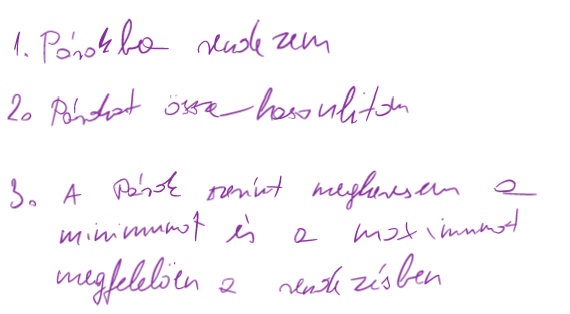 1. Párokba rendezem
2. Párokat össze hasonlitom
3. A Párok szerint megkeresem a
minimumot és a maximumot
megfelelően a rendezésben